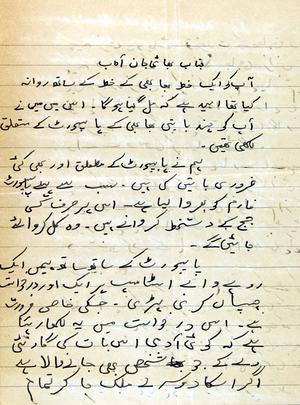 جناب بھائی جان آداب
آپ کو ایک خط بھابھی کے خط کے ساتھ روانہ
کیا تھا امید ہے کہ مل گیا ہوگا۔ اس میں میں نے
آپ کو چند باتیں بھابھی کے پاسپورٹ کے متعلق
لکھی تھیں۔
ہم نے پاسپورٹ کے متعلق اور بھی کئی
ضروری باتیں کی ہیں۔ سب سے پہلے پاسپورٹ
فارم کو بھروا لیا ہے۔ اس پر صرف کسی
جج کے دستخط کروانے ہیں۔ وہ کل کروائے
جائیں گے۔
پاسپورٹ کے ساتھ ساتھ ہمیں ایک
روپے والے اسٹامپ پر ایک اور درخواست
چسپاں کرنی پڑی۔ جسکی خاص ضرورت
ہے۔ اس درخواست میں یہ لکھا رہتا
ہے کہ کوئی آدمی اس بات کی گارنٹی
دے کہ جو شخص بھی جانے والا ہے
اگر اسکا دوسرے ملک جا کر تمام